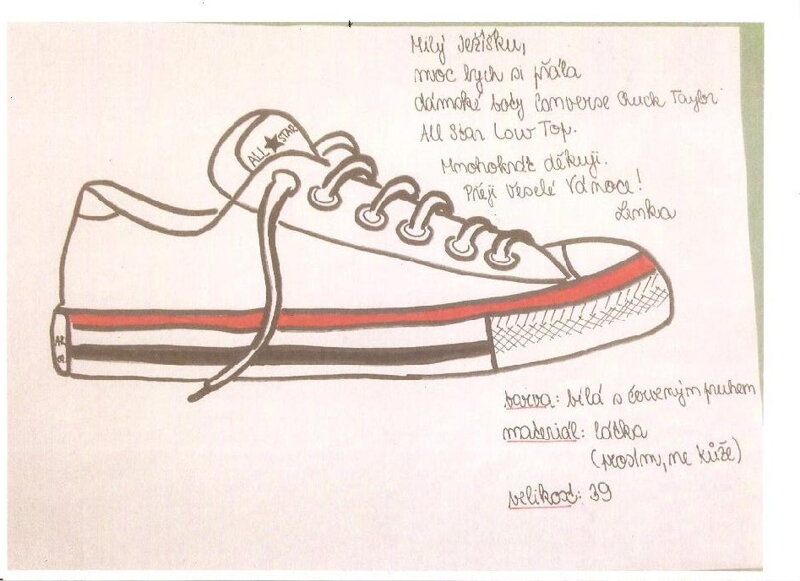 Milý Ježíšku,
moc bych si přála
dámské boty Converse Chuck Taylor
All Star Low Top.
Mnohokrát děkuji.
Přeji Veselé Vánoce!
Lenka
ALL ★ STAR
barva: bílá s červeným pruhem
materiál: látka
(prosím, ne kůže)
velikost: 39